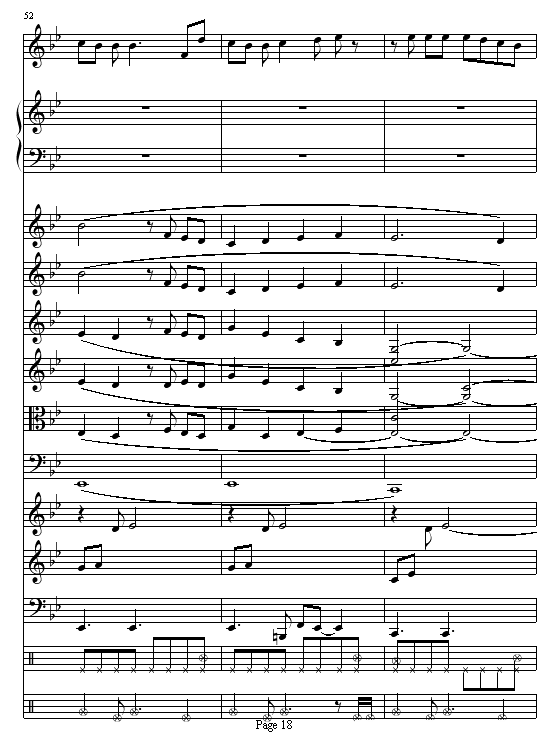 52
Page 18